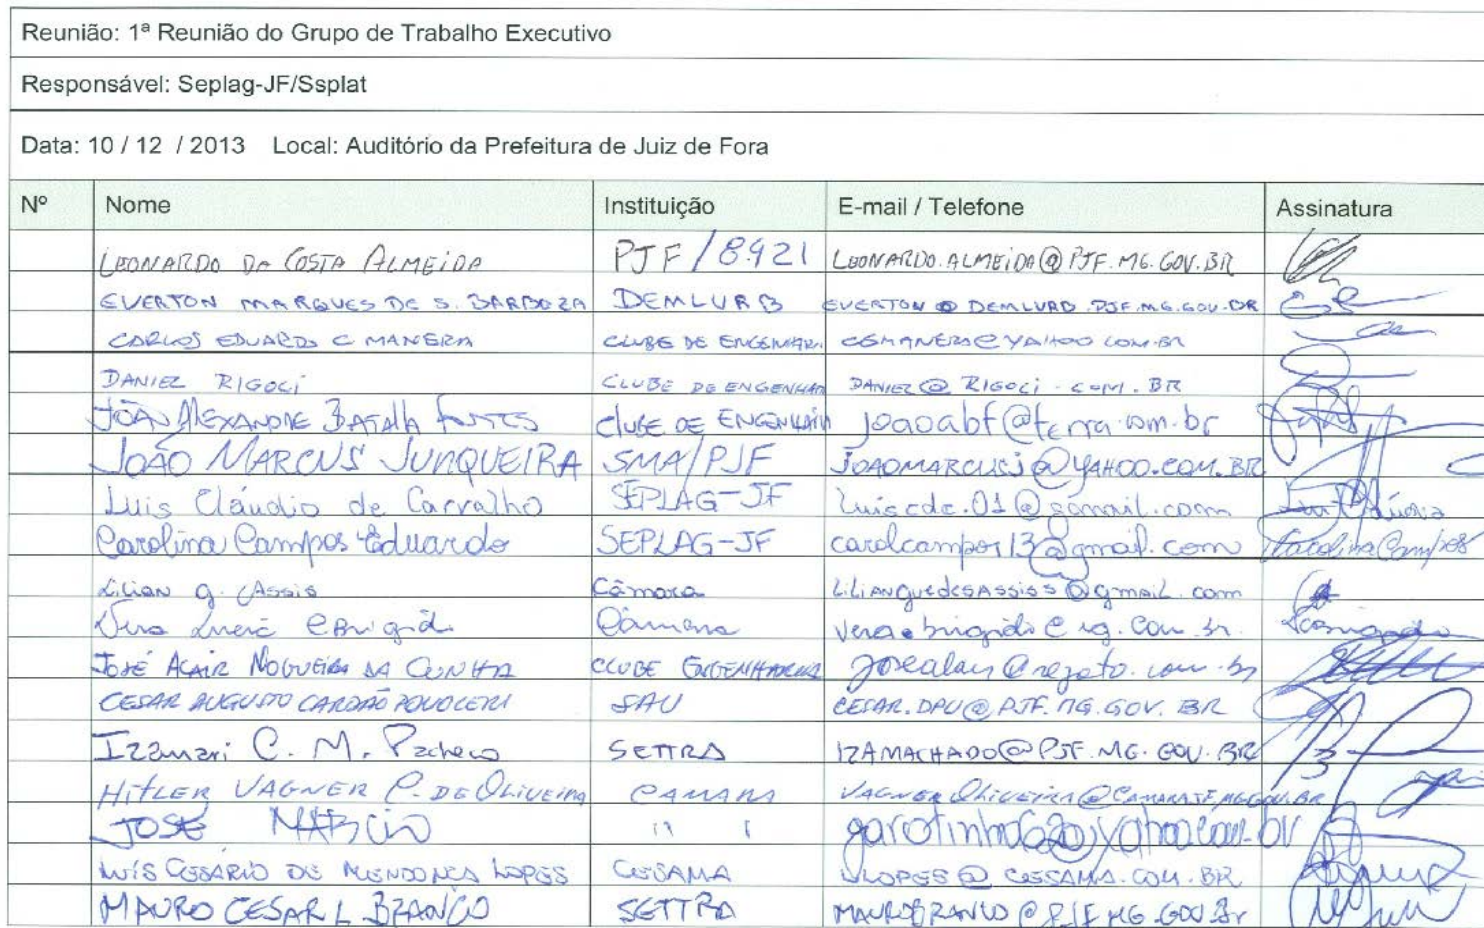 Reunião: 1ª Reunião do Grupo de Trabalho Executivo
Responsável: Seplag-JF/Ssplat
Data: 10 / 12 / 2013 Local: Auditório da Prefeitura de Juiz de Fora
Nº Nome Instituição E-mail / Telefone Assinatura
LEONARDO DA COSTA ALMEIDA PJF/8921 LEONARDO.ALMEIDA@PJF.MG.GOV.BR
EVERTON MARQUES DE S. BARBOZA DEMLURB EVERTON@DEMLURB.PJF.MG.GOV.BR
CARLOS EDUARDO C MANERA CLUBE DE ENGENHARI CEMANERA@YAHOO.COM.BR
DANIEL RIGOLI CLUBE DE ENGENHAR DANIEL@RIGOLI.COM.BR
JOÃO ALEXANDRE BATALHA FONTES CLUBE DE ENGENHARIA joaoabf@terra.com.br
JOÃO MARCUS JUNQUEIRA SMA/PJF JOAOMARCUSJ@YAHOO.COM.BR
Luis Cláudio de Carvalho SEPLAG-JF luiscdc.01@gmail.com
Carolina Campos Eduardo SEPLAG-JF carolcampos13@gmail.com Carolina Campos
Lilian G. Assis Câmara LILIANguedesAssis@gmail.com
Vera Lucia Câmara
JOSÉ ALAIR NOGUEIRA DA CUNHA CLUBE ENGENHARIA
CESAR AUGUSTO SAU CESAR.DPU@PJF.MG.GOV.BR
Izamari C. M. Pacheco SETTRA IZAMACHADO@PJF.MG.GOV.BR
HITLER VAGNER C. DE OLIVEIRA CAMARA
JOSÉ MÁRCIO " "
LUÍS CESARIO DE MENDONÇA LOPES CESAMA LLOPES@CESAMA.COM.BR
MAURO CESAR L BRANCO SETTRA MAUROBRANCO@PJF.MG.GOV.Br